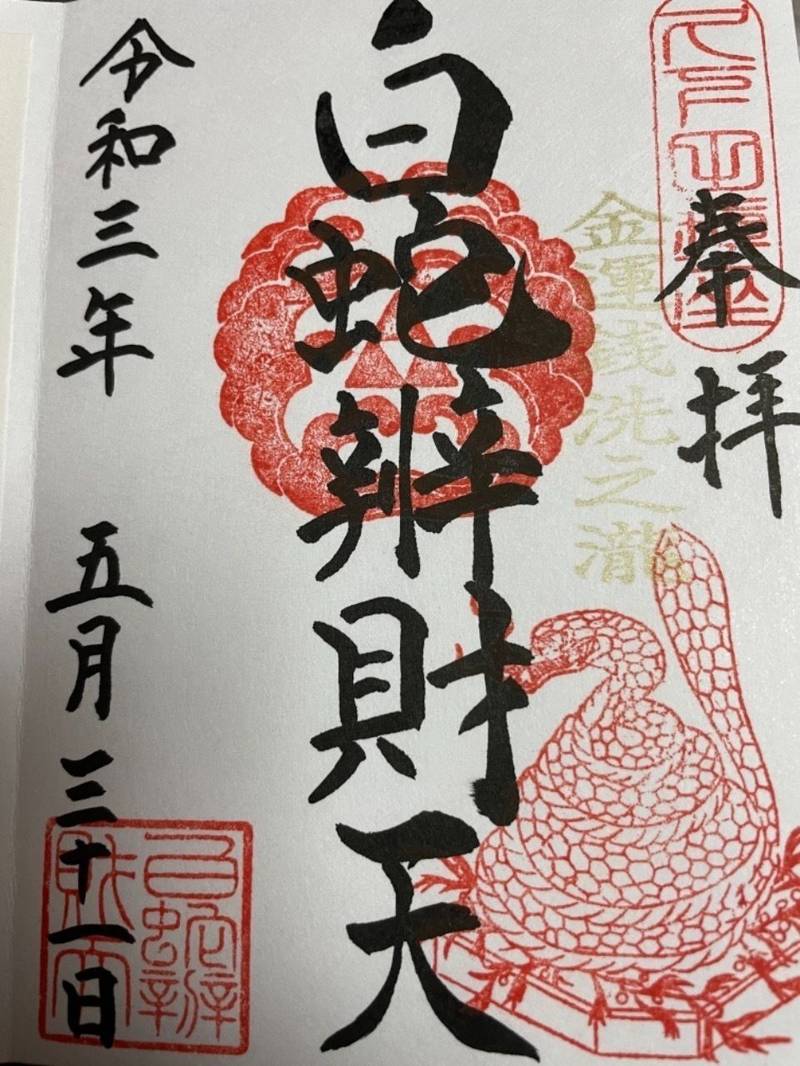 久下田鎮座
奉拝
金運銭洗之瀧
白蛇辨財天
令和三年 五月三十一日
白蛇辨
財天